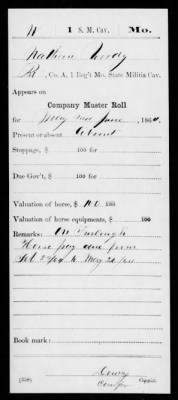 1 S. M. Cav. Mo.
Co. A, 1 Reg't Mo. State Militia Cav.
Appears on
Company Muster Roll
for May and June, 1864.
Present or absent Absent
Stoppage, $ 100 for
Due Gov't, $ 100 for
Valuation of horse, $ 100
Valuation of horse equipments, $ 100
Remarks: On Furlough
Horse pay due from
to May 20/64
Book mark:
(358) Copyist.